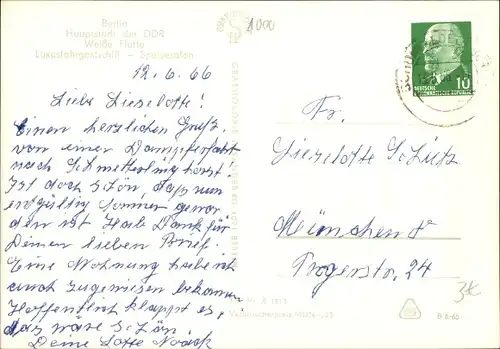 Berlin
Hauptstadt der DDR
Weiße Flotte
Luxusfahrgastschiff – Speisesalon
1000
12.6.66
Liebe Lieselotte!
Einen herzlichen Gruß
von einer Dampferfahrt
nach Schmetterlingshorst.
Ist doch schön, daß nun
endgültig Sommer gewor
den ist. Hab Dank für
Deinen lieben Brief.
Eine Wohnung habe ich
auch zugewiesen bekommen
Hoffentlich klappt es,
das wäre schön.
Deine Lotte
10
DEUTSCHE
DEMOKRATISCHE REPUBLIK
Fr.
Lieselotte Schütz
München 8
Trogerstr. 24
3€
B 8/65